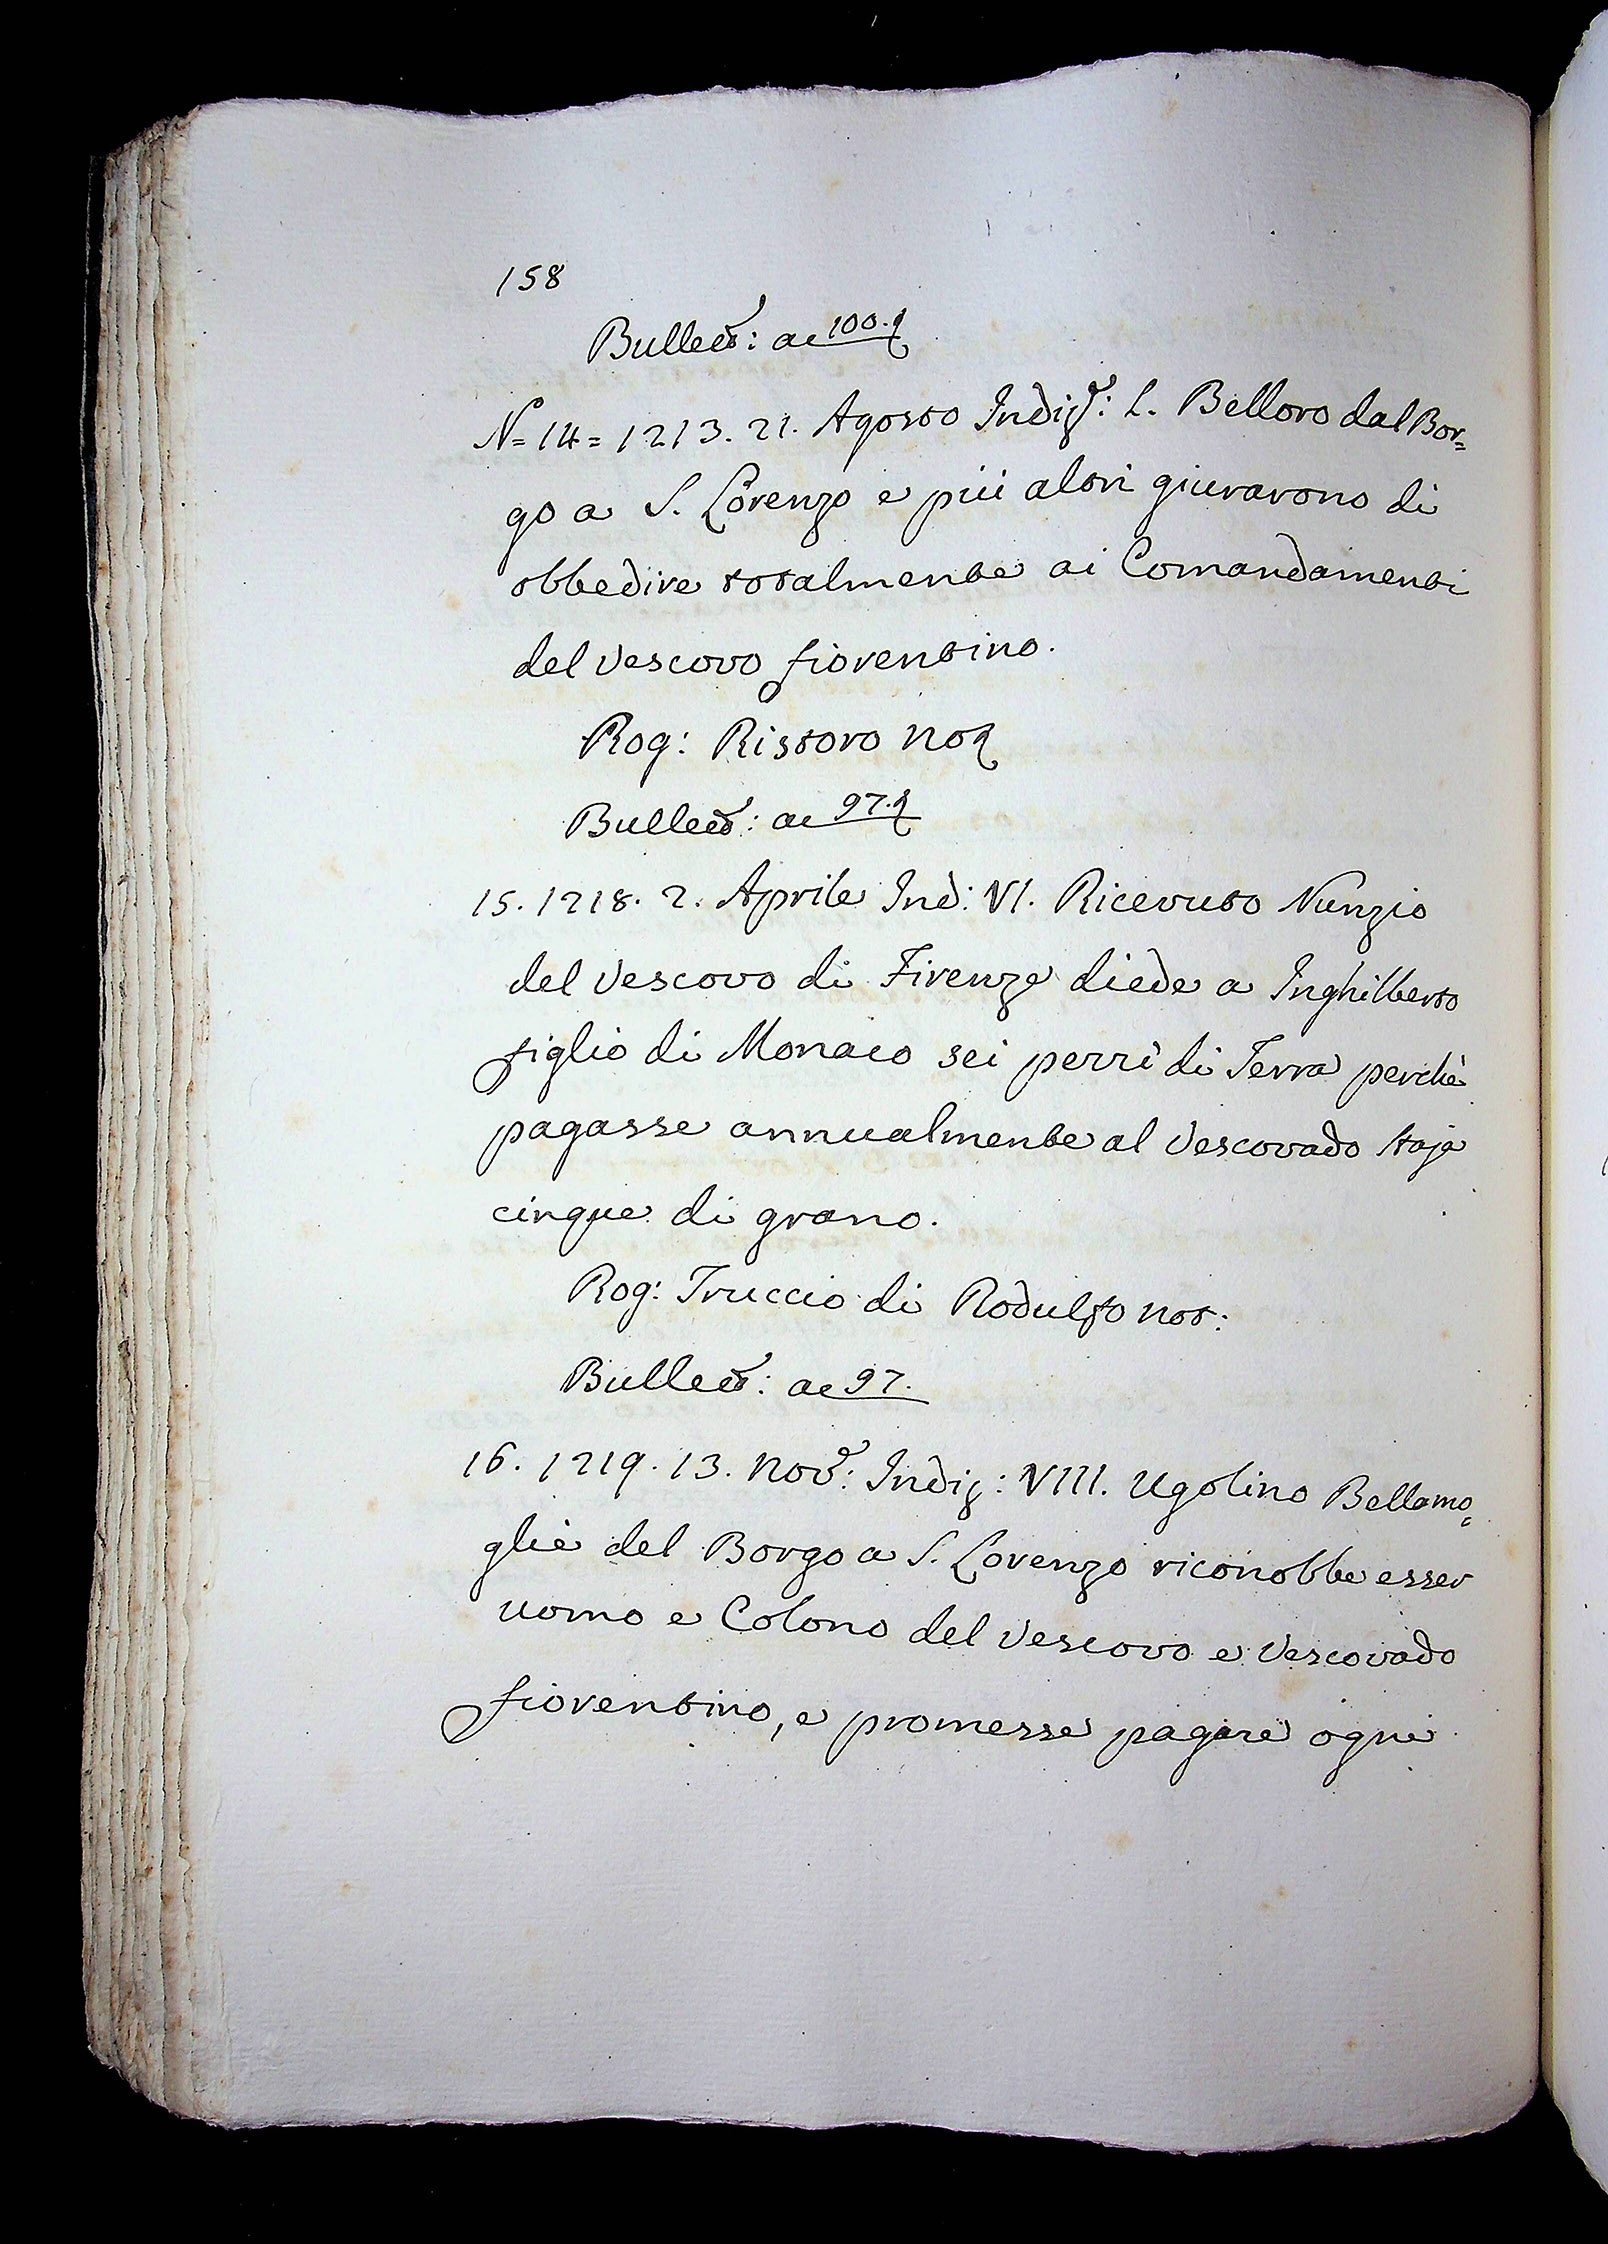 158
Bullett: a c 100.
N= 14= 1213. 21. Agosto Indiz: L. Belloro dal Bor=
go a S. Lorenzo e più altri giurarono di
obbedire totalmente ai Comandamenti
del Vescovo fiorentino.
Rog: Ristoro not
Bullett: a c 97.
15. 1218. 2. Aprile Ind: VI. Ricevuto Nunzio
del Vescovo di Firenze diede a Inghilberto
figlio di Monaco sei pezzi di Terra perchè
pagasse annualmente al Vescovado Staja
cinque di grano.
Rog: Truccio di Rodulfo not:
Bullett: a c 97.
16. 1219. 13. Nov: Indiz: VIII. Ugolino Bellamo=
glie del Borgo a S. Lorenzo riconobbe esser
uomo e Colono del Vescovo e Vescovado
fiorentino, e promesse pagare ogni